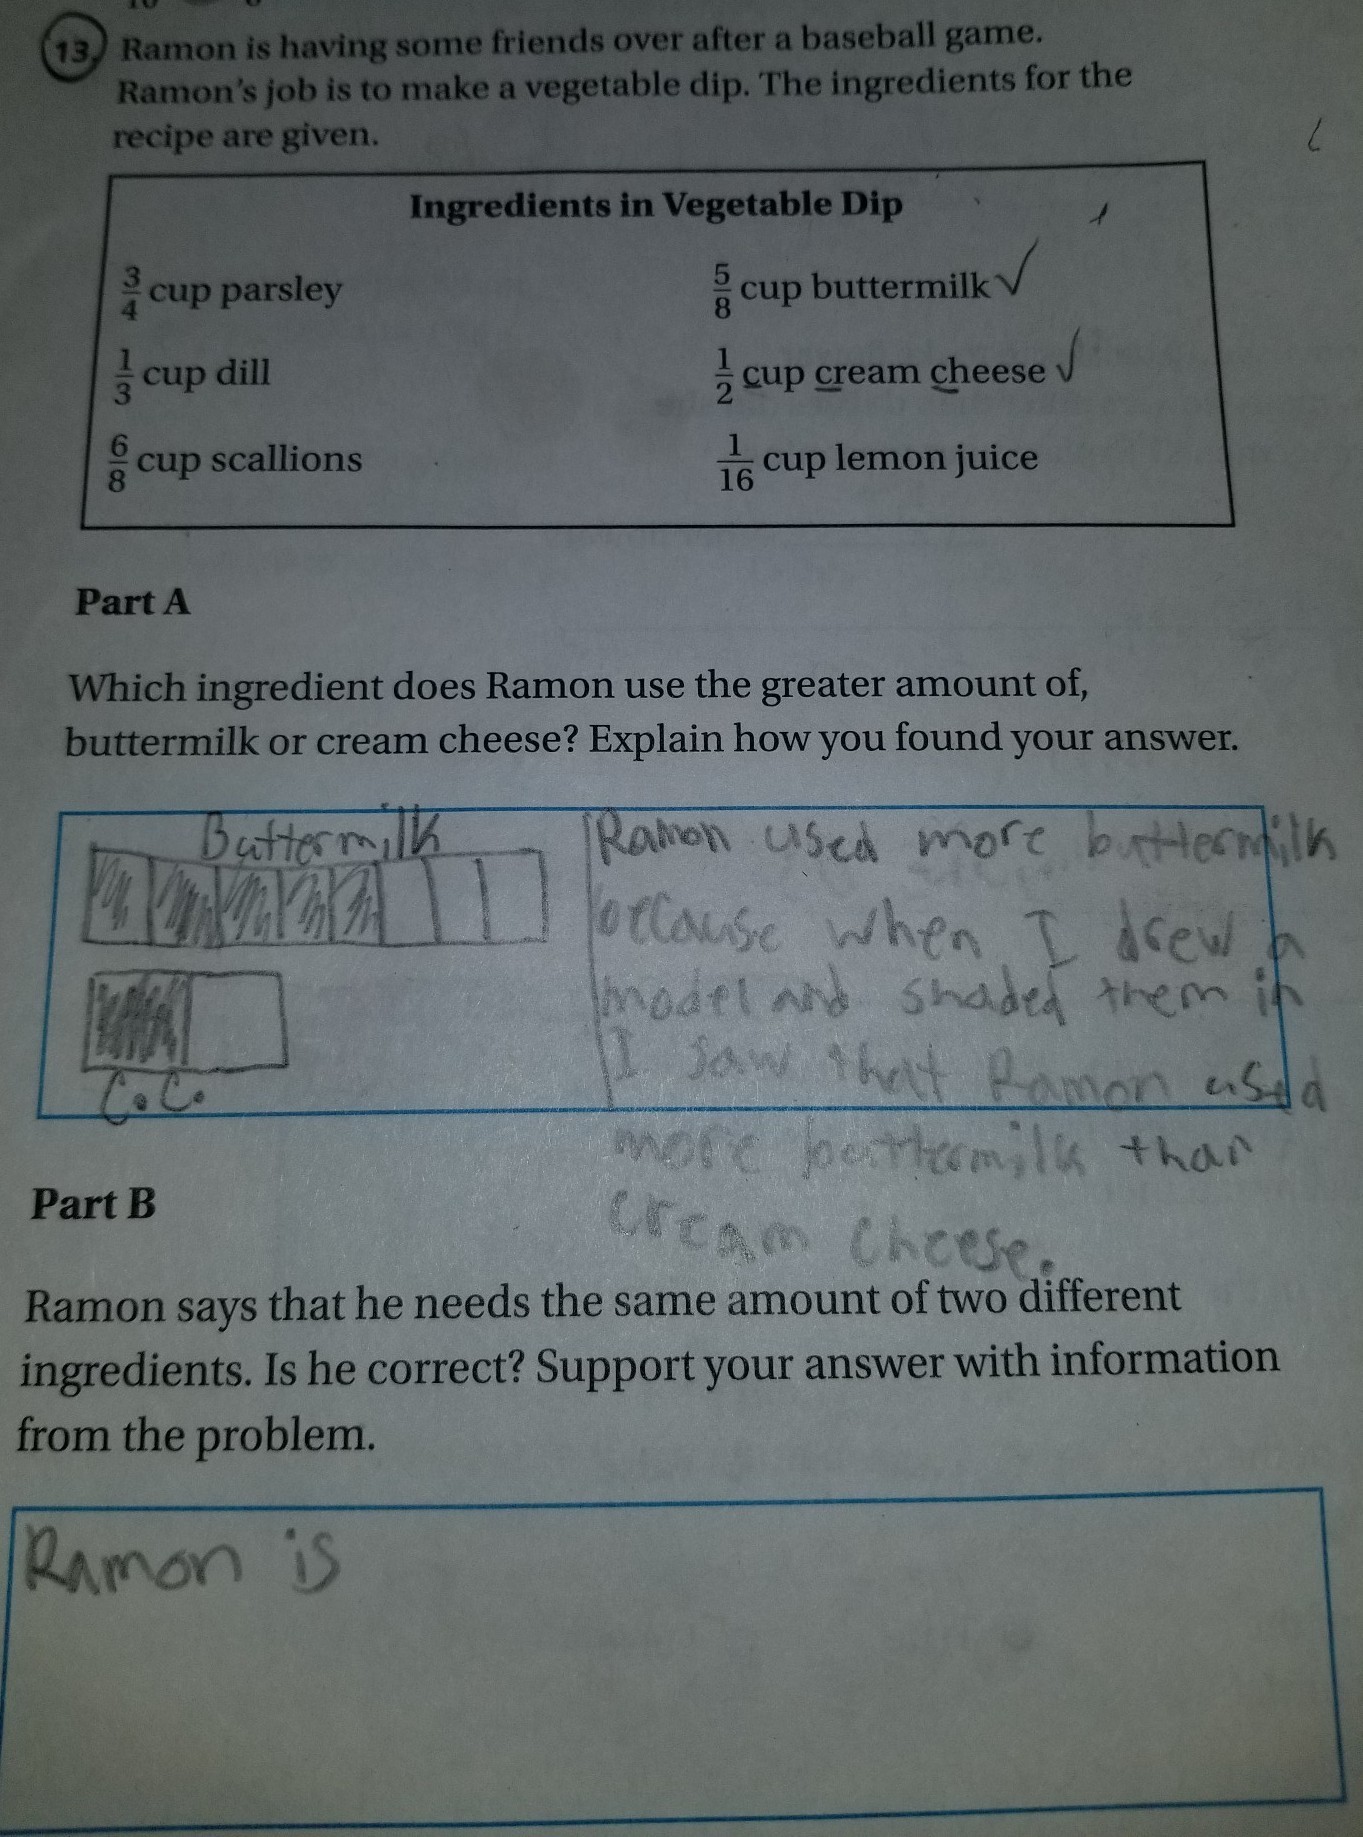 13. Ramon is having some friends over after a baseball game.
Ramon's job is to make a vegetable dip. The ingredients for the
recipe are given.
Ingredients in Vegetable Dip
3/4 cup parsley
5/8 cup buttermilk ✓
1/3 cup dill
1/2 cup cream cheese ✓
6/8 cup scallions
1/16 cup lemon juice
Part A
Which ingredient does Ramon use the greater amount of,
buttermilk or cream cheese? Explain how you found your answer.
Buttermilk
C.C.
Ramon used more buttermilk
because when I drew a
model and shaded them in
I saw that Ramon used
more buttermilk than
cream cheese.
Part B
Ramon says that he needs the same amount of two different
ingredients. Is he correct? Support your answer with information
from the problem.
Ramon is